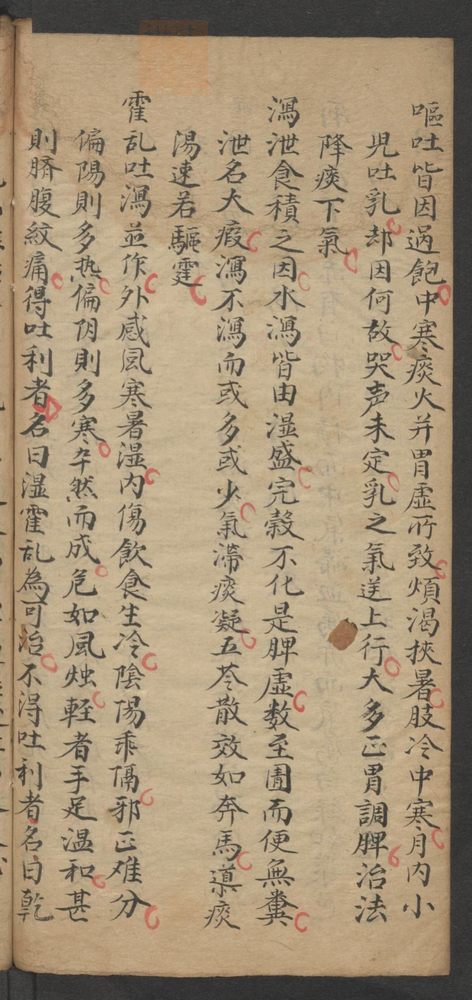 嘔吐皆因過飽中寒痰火并胃虛所致煩渴挾暑肢冷中寒月内小
児吐乳却因何故哭声未定乳之氣逆上行大多正胃調脾治法
降痰下氣
瀉泄食積之因水瀉皆由湿盛完穀不化是脾虛数至圊而便無糞
泄名大瘕瀉不瀉而或多或少氣滞痰凝五苓散效如奔馬導痰
湯速若驅霆
霍乱吐瀉並作外感風寒暑湿内傷飲食生冷陰陽乖隔邪正难分
偏陽則多热偏阴則多寒卒然而成危如風烛軽者手足温和甚
則臍腹絞痛得吐利者名曰湿霍乱為可治不得吐利者名曰乾